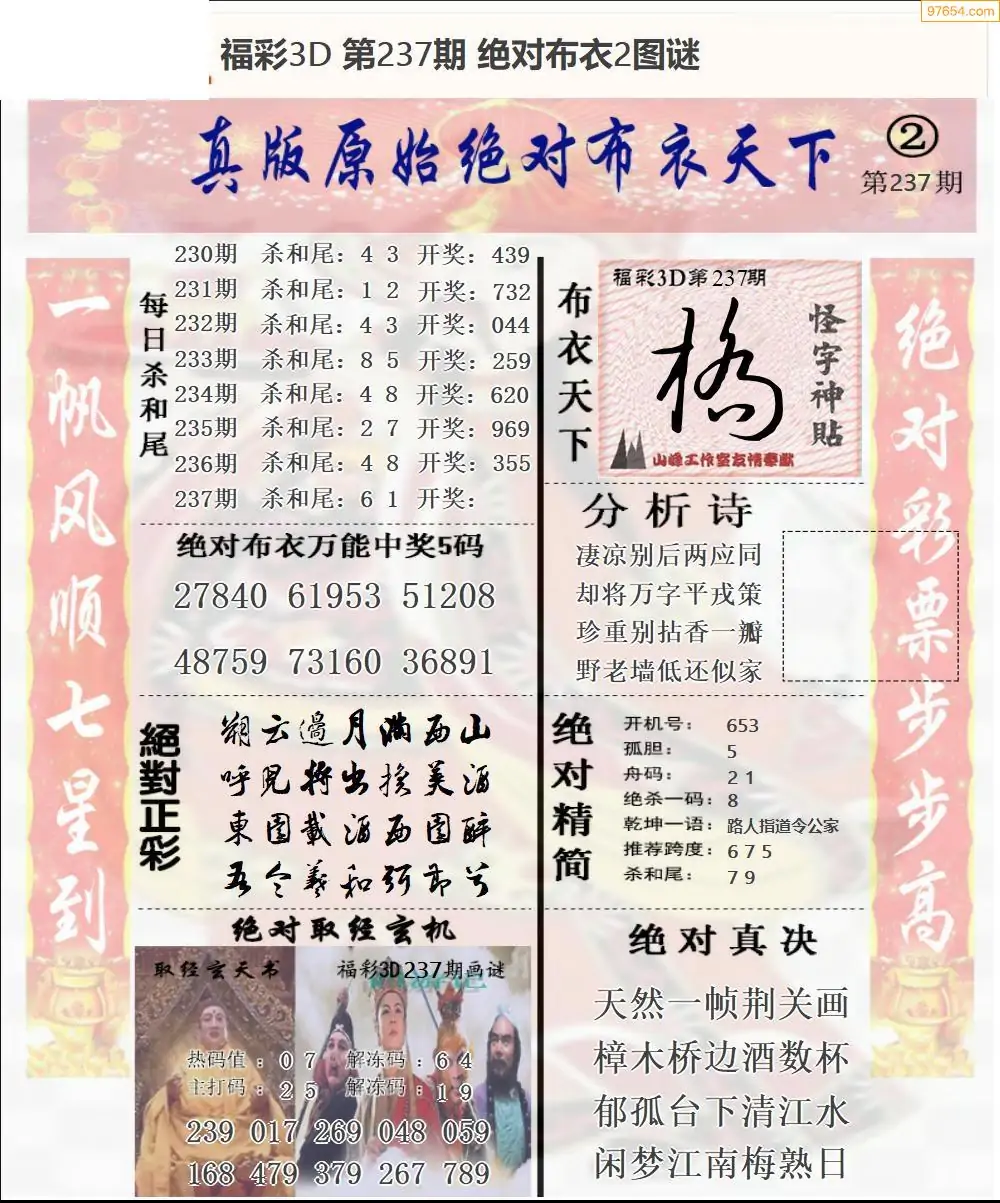 97654.com
福彩3D 第237期 绝对布衣2图谜
真版原始绝对布衣天下
②
第237期
一帆风顺七星到
每日杀和尾
230期 杀和尾：4 3 开奖：439
231期 杀和尾：1 2 开奖：732
232期 杀和尾：4 3 开奖：044
233期 杀和尾：8 5 开奖：259
234期 杀和尾：4 8 开奖：620
235期 杀和尾：2 7 开奖：969
236期 杀和尾：4 8 开奖：355
237期 杀和尾：6 1 开奖：
布衣天下
福彩3D第237期
橋
怪字神貼
山峰工作室友情奉献
绝对彩票步步高
绝对布衣万能中奖5码
27840 61953 51208
48759 73160 36891
分析诗
凄凉别后两应同
却将万字平戎策
珍重别拈香一瓣
野老墙低还似家
絕對正彩
朔云邊月滿西山
呼兒将出换美酒
東園載酒西園醉
吾令羲和弭節兮
绝对精简
开机号： 653
孤胆： 5
舟码： 2 1
绝杀一码：8
乾坤一语：路人指道令公家
推荐跨度：6 7 5
杀和尾： 7 9
绝对取经玄机
取经玄天书
福彩3D237期画谜
热码值：0 7 解冻码：6 4
主打码：2 5 解冻码：1 9
239 017 269 048 059
168 479 379 267 789
绝对真决
天然一帧荆关画
樟木桥边酒数杯
郁孤台下清江水
闲梦江南梅熟日